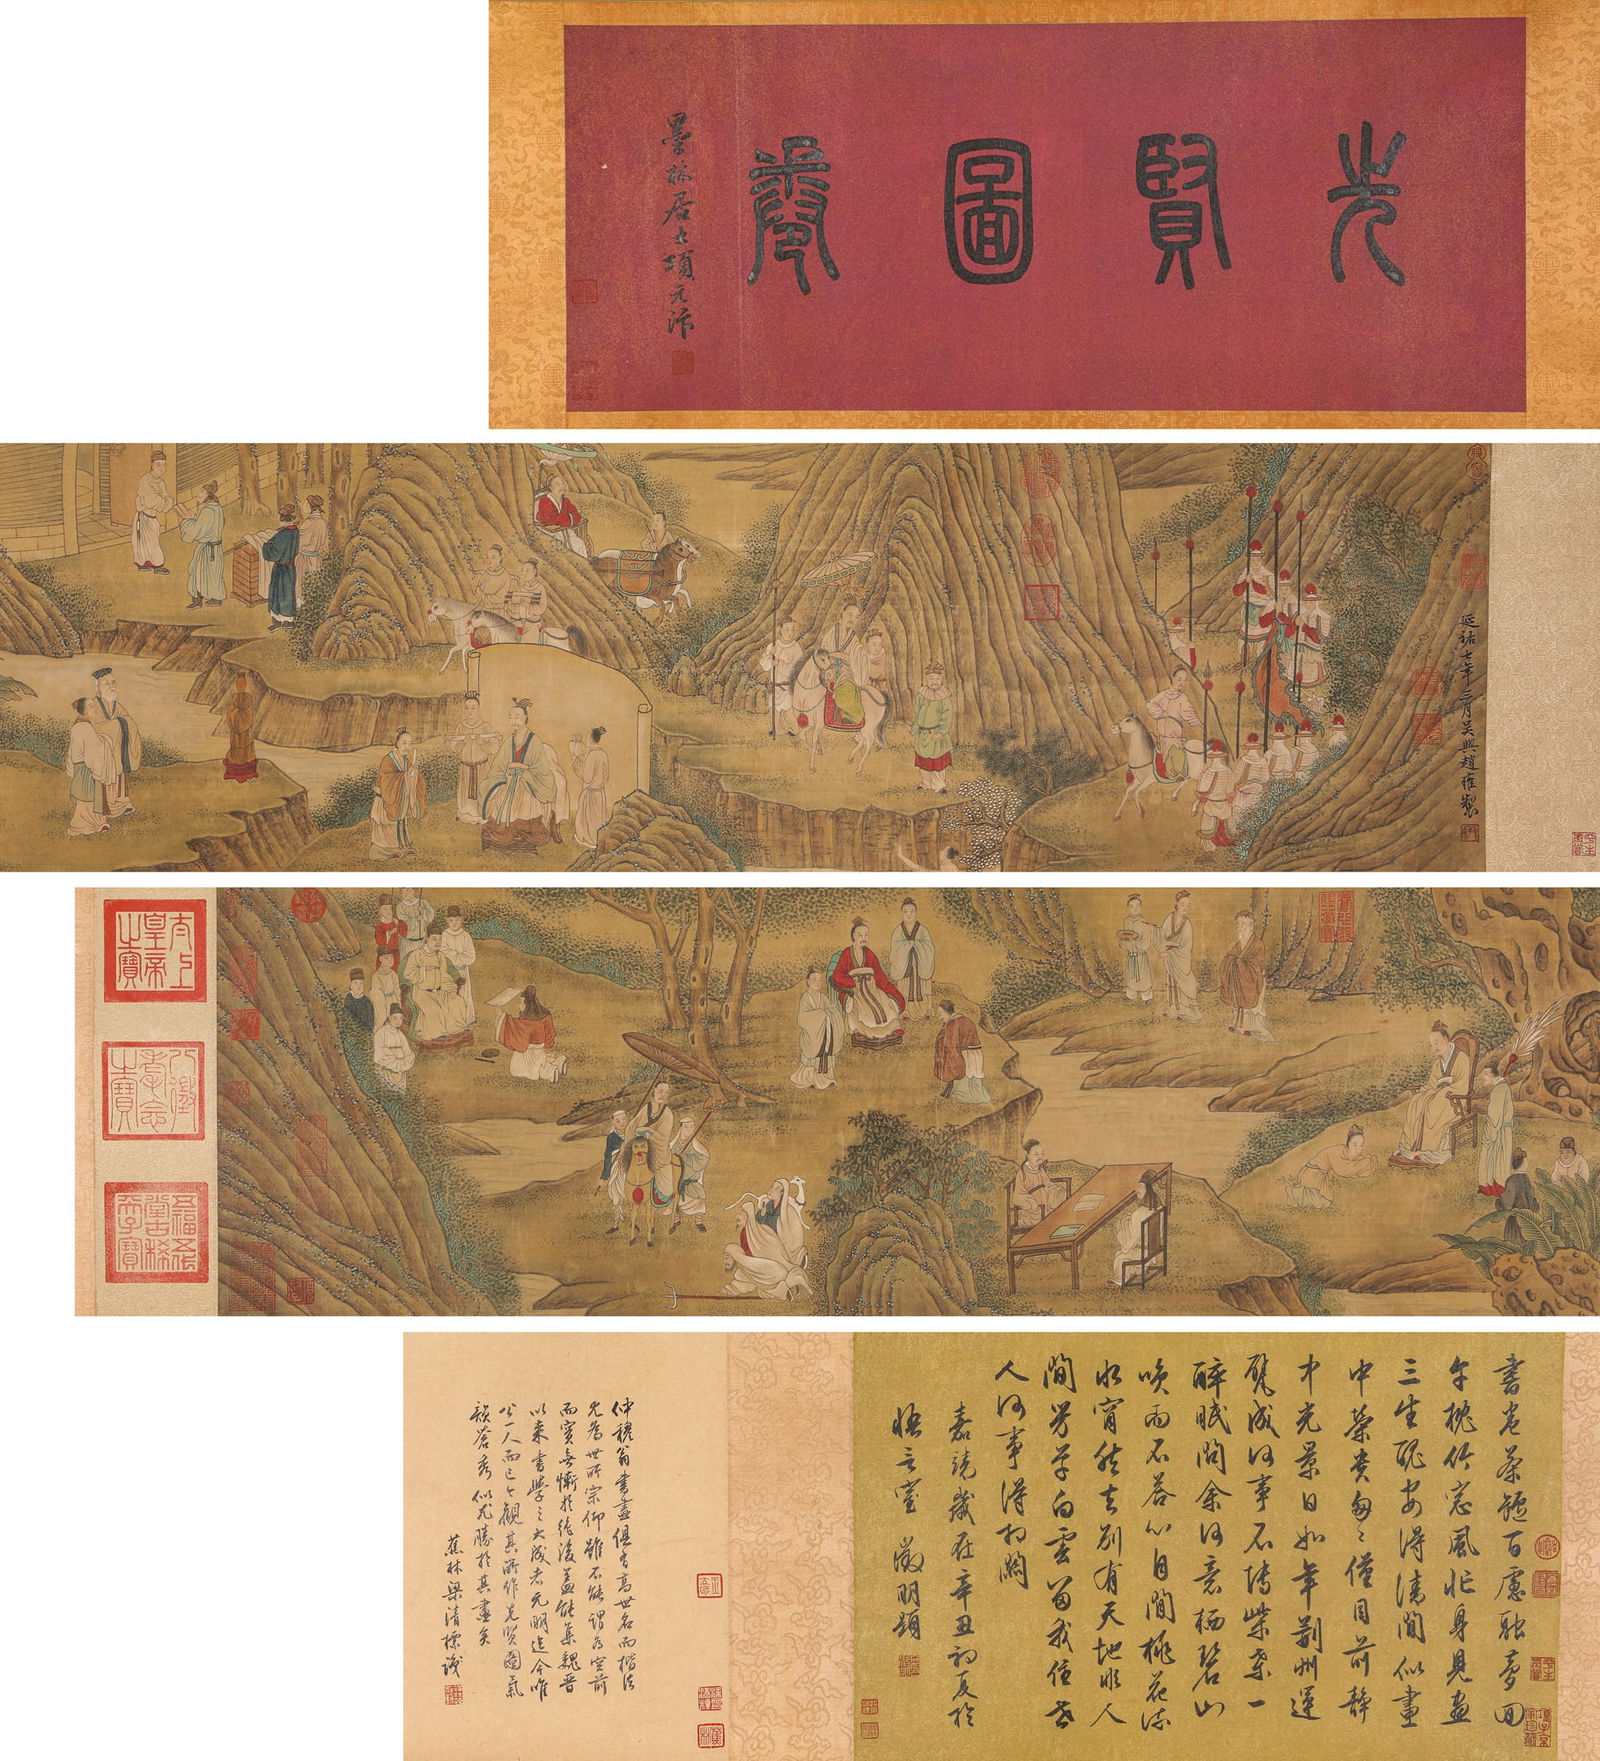 先賢圖卷
墨林居士項元汴
延祐七年二月吳興趙雍製
太上皇帝之寶
八徵耄念之寶
五福五代堂古稀天子寶
書卷茶罏百慮融夢回
午枕竹窓風忙身見畫
三生騐安得清閒似畫
中榮貴匆匆僅目前靜
中光景日如年荊州運
甓成何事不博柴桑一
醉眠問余何意栖碧山
咲而不答心自閒桃花流
水窅然去別有天地非人
間芳草白雲留我住世
人何事得相關
嘉靖歲在辛丑初夏於
悟言室 徵明題
仲穆翁書畫俱有高世名而楷法
尤為世所宗仰雖不能謂為空前
而實無慚於絕後蓋能集魏晉
以來書學之大成者元明迄今唯
公一人而已今觀其所作先賢圖氣
韻蒼秀似尤勝於其畫矣
蕉林梁清標識